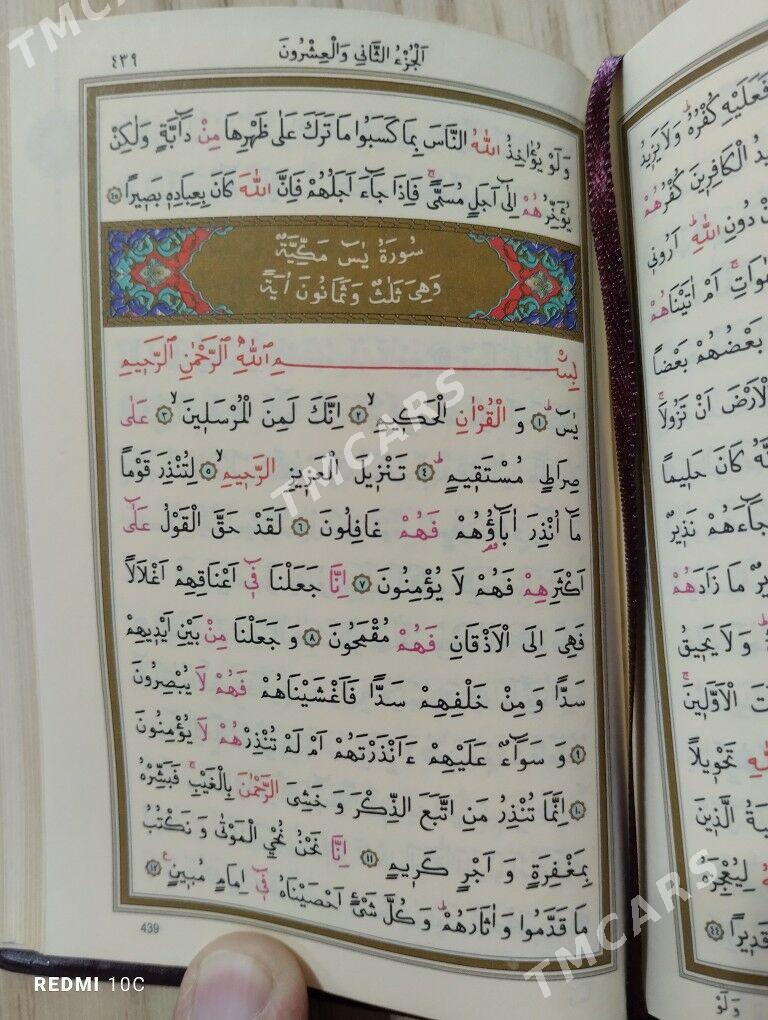 ٤٣٩
اَلْجُزْءُ الثَّانِي وَالْعِشْرُونَ
وَلَوْ يُؤَاخِذُ اللّٰهُ النَّاسَ بِمَا كَسَبُوا مَا تَرَكَ عَلٰى ظَهْرِهَا مِنْ دَٓابَّةٍ وَلٰكِنْ
يُؤَخِّرُهُمْ اِلٰٓى اَجَلٍ مُسَمًّىۚ فَاِذَا جَٓاءَ اَجَلُهُمْ فَاِنَّ اللّٰهَ كَانَ بِعِبَادِه۪ بَص۪يرًا ﴿٤٥﴾
سُورَةُ يٰسٓ مَكِّيَّةٌ
وَهِيَ ثَلٰثٌ وَثَمَانُونَ اٰيَةً
بِسْمِ اللّٰهِ الرَّحْمٰنِ الرَّح۪يمِ
يٰسٓۜ ﴿١﴾ وَ الْقُرْاٰنِ الْحَك۪يمِۙ ﴿٢﴾ اِنَّكَ لَمِنَ الْمُرْسَل۪ينَۙ ﴿٣﴾ عَلٰى
صِرَاطٍ مُسْتَق۪يمٍۜ ﴿٤﴾ تَنْز۪يلَ الْعَز۪يزِ الرَّح۪يمِۙ ﴿٥﴾ لِتُنْذِرَ قَوْمًا
مَٓا اُنْذِرَ اٰبَٓاؤُ۬هُمْ فَهُمْ غَافِلُونَ ﴿٦﴾ لَقَدْ حَقَّ الْقَوْلُ عَلٰٓى
اَكْثَرِهِمْ فَهُمْ لَا يُؤْمِنُونَ ﴿٧﴾ اِنَّا جَعَلْنَا ف۪ٓي اَعْنَاقِهِمْ اَغْلَالًا
فَهِيَ اِلَى الْاَذْقَانِ فَهُمْ مُقْمَحُونَ ﴿٨﴾ وَ جَعَلْنَا مِنْ بَيْنِ اَيْد۪يهِمْ
سَدًّا وَ مِنْ خَلْفِهِمْ سَدًّا فَاَغْشَيْنَاهُمْ فَهُمْ لَا يُبْصِرُونَ
﴿٩﴾ وَ سَوَٓاءٌ عَلَيْهِمْ ءَاَنْذَرْتَهُمْ اَمْ لَمْ تُنْذِرْهُمْ لَا يُؤْمِنُونَ
﴿١٠﴾ اِنَّمَا تُنْذِرُ مَنِ اتَّبَعَ الذِّكْرَ وَ خَشِيَ الرَّحْمٰنَ بِالْغَيْبِۚ فَبَشِّرْهُ
بِمَغْفِرَةٍ وَ اَجْرٍ كَر۪يمٍ ﴿١١﴾ اِنَّا نَحْنُ نُحْيِ الْمَوْتٰى وَ نَكْتُبُ
مَا قَدَّمُوا وَ اٰثَارَهُمْۜ وَ كُلَّ شَيْءٍ اَحْصَيْنَاهُ ف۪ٓي اِمَامٍ مُب۪ينٍ۟ ﴿١٢﴾
439
فَعَلَيْهِ كُفْرُهُۜ وَلَا يَز۪يدُ
الْكَافِر۪ينَ كُفْرُهُمْ
دُونِ اللّٰهِۜ اَرُون۪ي
اَمْ اٰتَيْنَاهُمْ
بَعْضُهُمْ بَعْضًا
اَنْ تَزُولَاۚ
كَانَ حَل۪يمًا
جَٓاءَهُمْ نَذ۪يرٌ
مَا زَادَهُمْ
وَلَا يَح۪يقُ
الْاَوَّل۪ينَۚ
تَحْو۪يلًا
الَّذ۪ينَ
لِيُعْجِزَهُ
﴿٤٤﴾
وَلَوْ
TMCARS
TMCARS
TMCARS
TMCARS
REDMI 10C